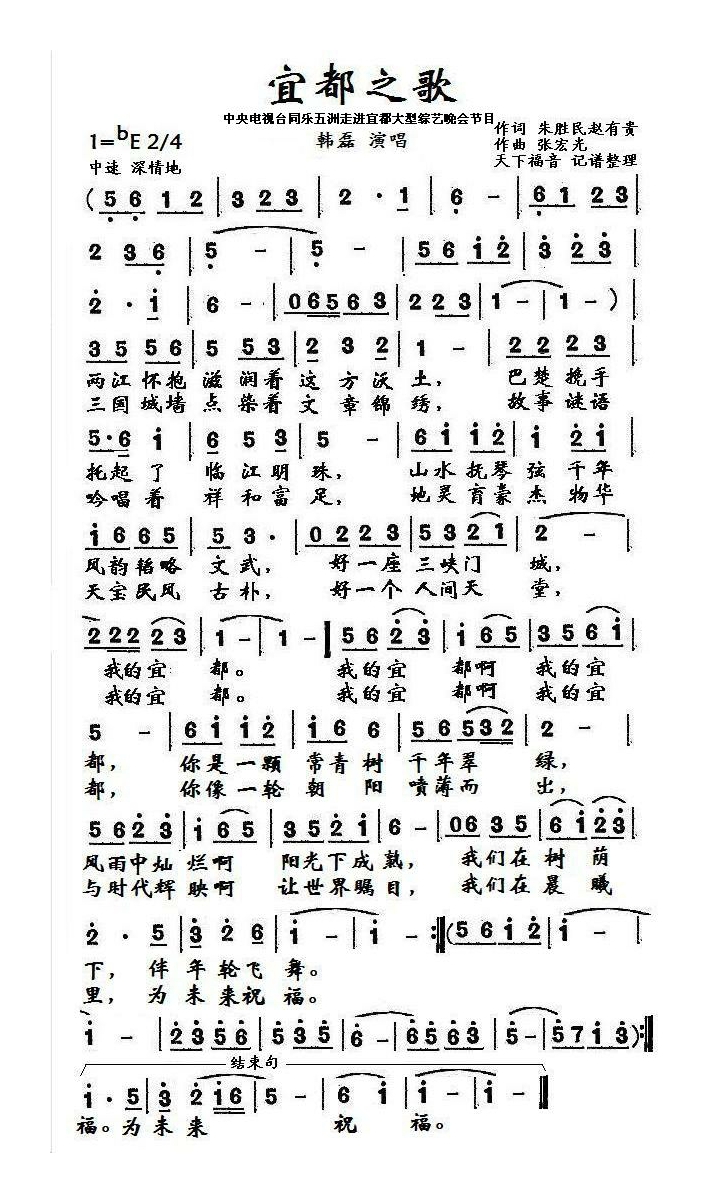 宜都之歌
中央电视台同乐五洲走进宜都大型综艺晚会节目
1=bE 2/4
韩磊 演唱
作词 朱胜民赵有贵
作曲 张宏光
天下福音 记谱整理
中速 深情地
(5 6 1 2 | 3 2 3 | 2 · 1 | 6 - | 6 1 2 3 |
2 3 6 | 5 - | 5 - | 5 6 1 2 | 3 2 3 |
2 · 1 | 6 - | 0 6 5 5 6 3 | 2 2 3 | 1 - | 1 - )
3 5 5 6 | 5 5 3 | 2 3 2 | 1 - | 2 2 2 3 |
两江怀抱滋润着这方沃土，巴楚挽手
三国城墙点染着文章锦绣，故事谜语
5 · 6 1 | 6 5 3 | 5 - | 6 1 1 2 | 1 2 1 |
托起了临江明珠，山水抚琴弦千年
吟唱着祥和富足，地灵育豪杰物华
1 6 6 5 | 5 3 · | 0 2 2 3 | 5 3 2 1 | 2 - |
风韵韬略文武，好一座三峡门城，
天宝民风古朴，好一个人间天堂，
2 2 2 2 3 | 1 - | 1 - ‖ 5 6 2 3 | 1 6 5 | 3 5 6 1 |
我的宜都。我的宜都啊我的宜
我的宜都。我的宜都啊我的宜
5 - | 6 1 1 2 | 1 6 6 | 5 6 5 3 2 | 2 - |
都，你是一颗常青树千年翠绿，
都，你像一轮朝阳喷薄而出，
5 6 2 3 | 1 6 5 | 3 5 2 1 | 6 - | 0 6 3 5 | 6 1 2 3 |
风雨中灿烂啊阳光下成熟，我们在树荫
与时代辉映啊让世界瞩目，我们在晨曦
2 · 5 | 3 2 6 | 1 - | 1 - :‖ (5 6 1 2 | 1 - |
下，伴年轮飞舞。
里，为未来祝福。
1 - | 2 3 5 6 | 3 5 5 | 6 - | 6 5 6 3 | 5 - | 5 7 1 3 ):‖
结束句
1 · 5 | 3 2 1 6 | 5 - | 6 1 | 1 - | 1 - ‖
福。为未来祝福。